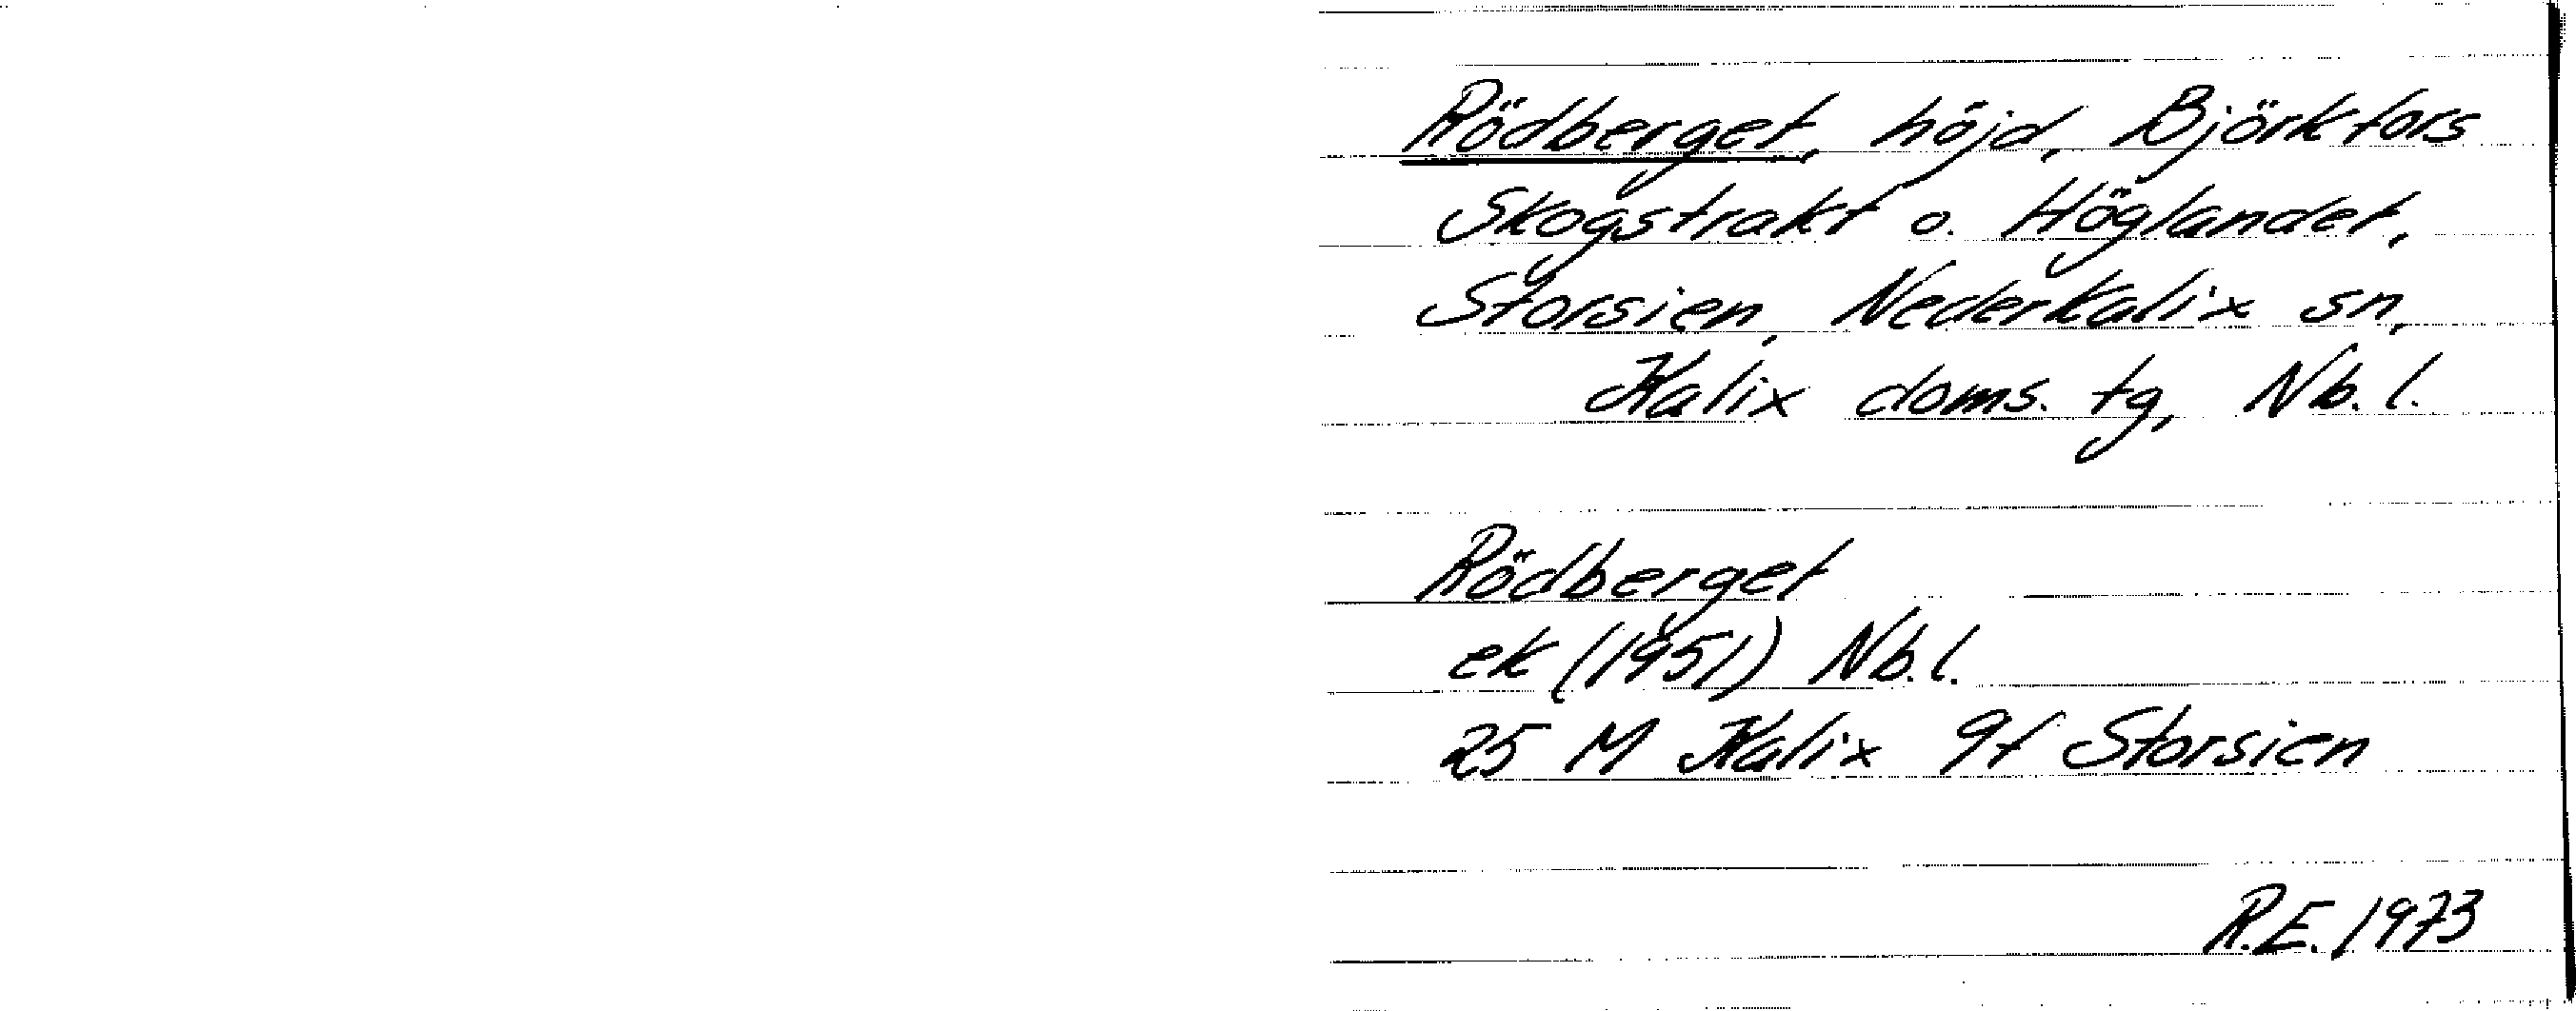 Rödberget, höjd, Björkfors
Skogstrakt o. Höglandet,
Storsien, Nederkalix sn,
Kalix doms. tg, Nb. l.
Rödberget
ek (1951) Nb. l.
25 M Kalix 9f Storsien
R.E. 1973